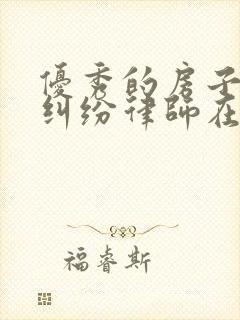 優秀的房子
糾纷律師在
福睿斯